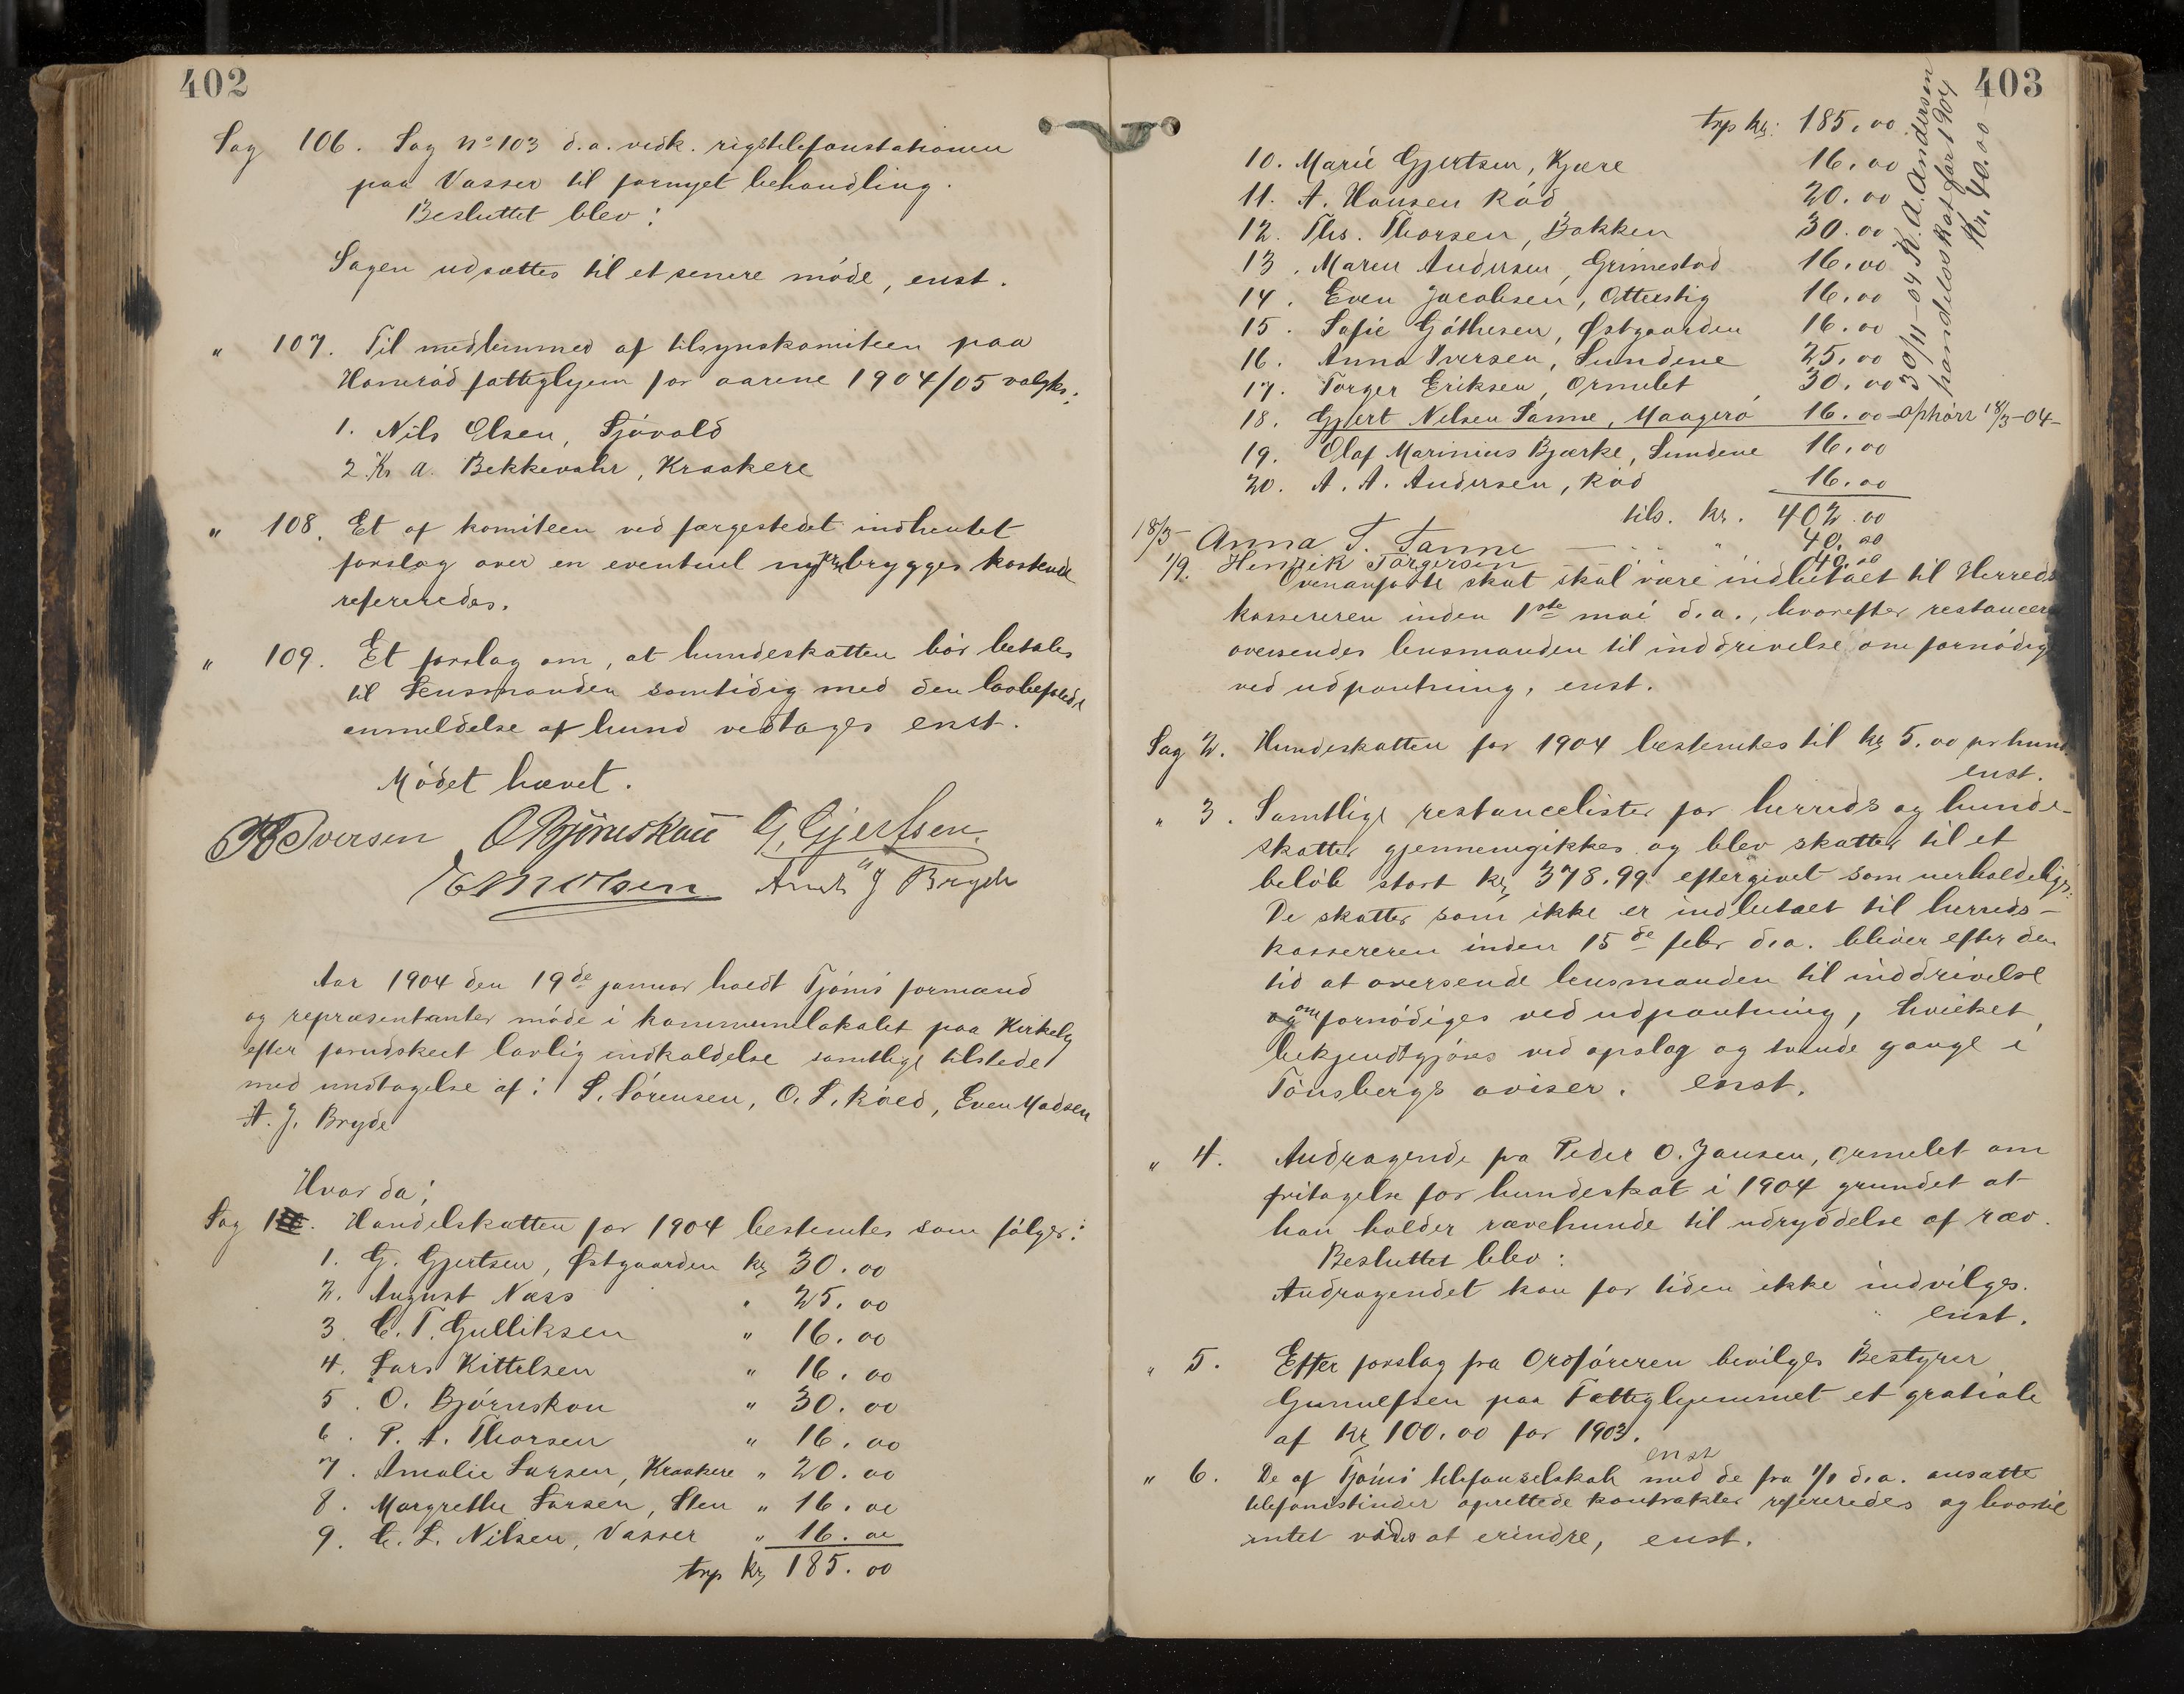 402
Sag 106. Sag No 103 d.a. vedk. rigstelefonstationen
paa Vasser til fornyet behandling.
Besluttet blev:
Sagen udsættes til et senere møde, enst.
" 107. Til medlemmer af tilsynskomiteen paa
fattighjem for aarene 1904/05 valgtes:
1. Nils Olsen, Sjøvold
2. Kr. A. Bekkevahr, Kraakere
" 108. Et af komiteen ved færgestedet indhentet
forslag over en eventuel brygges kostende
refereredes.
" 109. Et forslag om, at hundeskatten bør betales
til Lensmanden samtidig med den lovbefalede
anmeldelse af hund vedtages enst.
Mødet hævet.
Iversen O Bjørnskau G. Gjertsen
Olsen J Bryde
Aar 1904 den 19de januar holdt Tjømø formænd
og repræsentanter møde i kommunelokalet paa Kirkely
efter forudskeet lovlig indkaldelse samtlige tilstede
med undtagelse af: S. Sørensen, O. S. Røed, Even Madsen
A. J. Bryde
Hvor da:
Sag 1. Handelskatten for 1904 bestemtes som følger:
1. G. Gjertsen, Østgaarden kr 30.00
2. August Næss " 25.00
3. C. T. Gulliksen " 16.00
4. Lars Kittelsen " 16.00
5. O. Bjørnskou " 30.00
6. P. A. Thorsen " 16.00
7. Amalie Larsen, Kraakere " 20.00
8. Margrethe Larsen, Sten " 16.00
9. C. L. Nilsen, Vasser " 16.00
trp kr 185.00
403
trp kr: 185.00
10. Marie Gjertsen, Kjære 16.00
11. A. Hansen Rød 20.00
12. Ths. Thorsen, Bakken 30.00
13. Maren Andersen, Grimestad 16.00
14. Even Jacobsen, Otterstig 16.00
15. Sofie Gøthesen, Østgaarden 16.00
16. Anna Iversen, Sundene 25.00
17. Torger Eriksen, Ormelet 30.00
18. Gjert Nelsen Sanne, Maagerø 16.00 - ophørt 18/3-04-
19. Olaf Marinius Bjærke, Sundene 16.00
20. A. A. Andersen, Rød 16.00
tils. kr. 402.00
30/11-04 K. A. Andersen
handelsskat for 1904
Kr. 40.00
18/3- Anna T. Sanne — " 40.00
1/9. Henrik Torgersen — 40.00
Ovenanførte skat skal være indbetalt til Herreds
kassereren inden 1ste mai d.a., hvorefter restancer
oversendes lensmanden til inddrivelse om fornødig
ved udpantning, enst.
Sag 2. Hundeskatten for 1904 bestemtes til kr 5.00 pr hund
enst.
" 3. Samtlige restancelister for herreds og hunde-
skatter gjennemgikkes og blev skatter til et
beløb stort kr 378.99 eftergivet som uerholdelige.
De skatter som ikke er indbetalt til herreds-
kassereren inden 15de febr d.a. bliver efter den
tid at oversende lensmanden til inddrivelse
om fornødiges ved udpantning, hvilket
bekjendtgjøres ved opslag og tvende gange i
Tønsbergs aviser. enst.
" 4. Andragende fra Peder O. Jansen, Ormelet om
fritagelse for hundeskat i 1904 grundet at
han holder rævehunde til udryddelse af ræv.
Besluttet blev:
Andragendet kan for tiden ikke indvilges.
enst.
" 5. Efter forslag fra Ordføreren bevilges Bestyrer
Gunnulfsen paa Fattighjemmet et gratiale
af kr 100.00 for 1903.
enst
" 6. De af Tjømø telefonselskab med de fra 1/1 d.a. ansatte
telefonistinder oprettede kontrakter refereredes og hvortil
intet vides at erindre, enst.